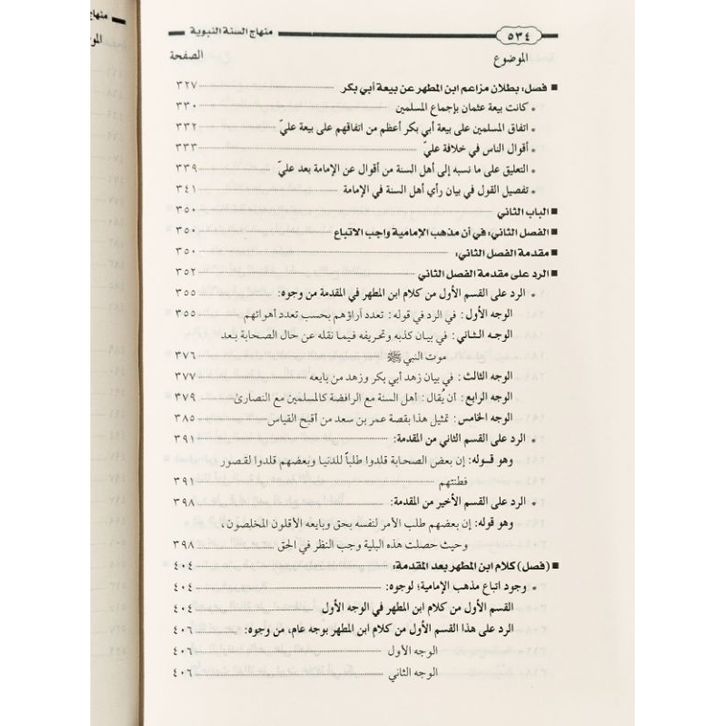 ٥٣٤ منهاج السنة النبوية
الموضوع الصفحة
■ فصل: بطلان مزاعم ابن المطهر عن بيعة أبي بكر ٣٢٧
• كانت بيعة عثمان بإجماع المسلمين ٣٣٠
• اتفاق المسلمين على بيعة أبي بكر أعظم من اتفاقهم على بيعة عليّ ٣٣٢
• أقوال الناس في خلافة عليّ ٣٣٣
• التعليق على ما نسبه إلى أهل السنة من أقوال عن الإمامة بعد عليّ ٣٣٩
• تفصيل القول في بيان رأي أهل السنة في الإمامة ٣٤١
■ الباب الثاني ٣٥٠
■ الفصل الثاني: في أن مذهب الإمامية واجب الاتباع ٣٥٠
■ مقدمة الفصل الثاني: ٣٥٠
■ الرد على مقدمة الفصل الثاني ٣٥٢
• الرد على القسم الأول من كلام ابن المطهر في المقدمة من وجوه: ٣٥٥
الوجه الأول: في الرد في قوله: تعدد آراؤهم بحسب تعدد أهوائهم ٣٥٥
الوجه الثاني: في بيان كذبه وتحريفه فيما نقله عن حال الصحابة بعد
موت النبي ﷺ ٣٧٦
الوجه الثالث: في بيان زهد أبي بكر وزهد من بايعه ٣٧٧
الوجه الرابع: أن يُقال: أهل السنة مع الرافضة كالمسلمين مع النصارى ٣٧٩
الوجه الخامس: تمثيل هذا بقصة عمر بن سعد من أقبح القياس ٣٨٥
• الرد على القسم الثاني من المقدمة: ٣٩١
وهو قوله: إن بعض الصحابة قلدوا طلباً للدنيا وبعضهم قلدوا لقصور
فطنتهم ٣٩١
• الرد على القسم الأخير من المقدمة: ٣٩٨
وهو قوله: إن بعضهم طلب الأمر لنفسه بحق وبايعه الأقلون المخلصون،
وحيث حصلت هذه البلية وجب النظر في الحق ٣٩٨
■ (فصل) كلام ابن المطهر بعد المقدمة: ٤٠٤
• وجود اتباع مذهب الإمامية؛ لوجوه: ٤٠٤
القسم الأول من كلام ابن المطهر في الوجه الأول ٤٠٤
الرد على هذا القسم الأول من كلام ابن المطهر بوجه عام، من وجوه: ٤٠٦
الوجه الأول ٤٠٦
الوجه الثاني ٤٠٦